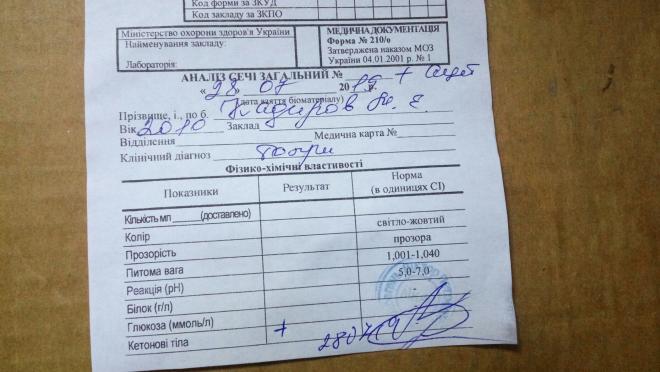 Код форми за ЗКУД
Код закладу за ЗКПО
Міністерство охорони здоров'я України
Найменування закладу:
Лабораторія:
МЕДИЧНА ДОКУМЕНТАЦІЯ
Форма № 210/о
Затверджена наказом МОЗ
України 04.01.2001 р. № 1
АНАЛІЗ СЕЧІ ЗАГАЛЬНИЙ №
«28» 07 2019 р.
(дата взяття біоматеріалу)
Прізвище, і., по б.
Вік 2010 Заклад
Відділення Медична карта №
Клінічний діагноз
Фізико-хімічні властивості
Показники Результат Норма (в одиницях СІ)
Кількість мл (доставлено)
Колір світло-жовтий
Прозорість прозора
Питома вага 1,001-1,040
Реакція (рН) 5,0-7,0
Білок (г/л) -
Глюкоза (ммоль/л)
Кетонові тіла +
280719